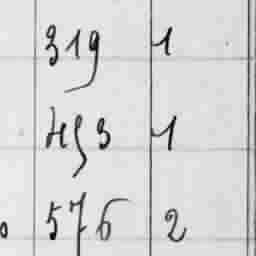 319 1
453 1
576 2